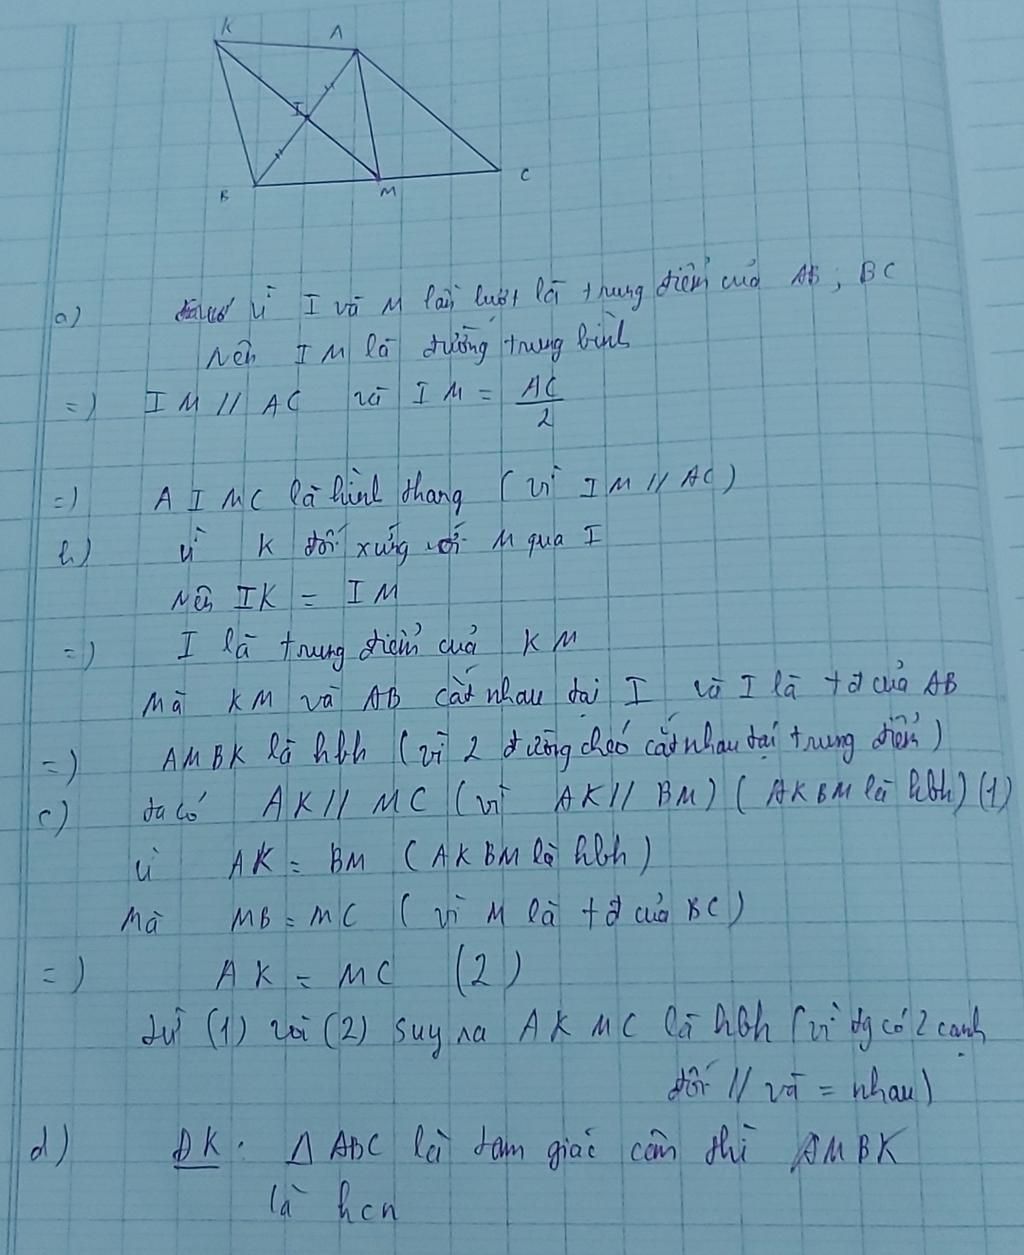 K A
I
B M C
a) Vì I và M lần lượt là trung điểm của AB, BC
Nên IM là đường trung bình
=) IM // AC và IM = AC/2
=) AIMC là hình thang (vì IM // AC)
b) Vì K đối xứng với M qua I
Nên IK = IM
=) I là trung điểm của KM
Mà KM và AB cắt nhau tại I và I là tđ của AB
=) AMBK là hbh (vì 2 đường chéo cắt nhau tại trung điểm)
c) ta có AK // MC (vì AK // BM) (AKBM là hbh) (1)
Vì AK = BM (AKBM là hbh)
Mà MB = MC (vì M là tđ của BC)
=) AK = MC (2)
từ (1) và (2) suy ra AKMC là hbh (vì tg có 2 cạnh
đối // và = nhau)
d) ĐK: Δ ABC là tam giác cân thì AMBK
là hcn